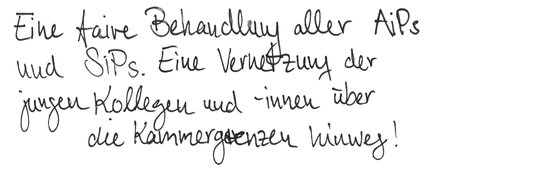 Eine faire Behandlung aller AiPs
und SiPs. Eine Vernetzung der
jungen Kollegen und -innen über
die Kammergrenzen hinweg!